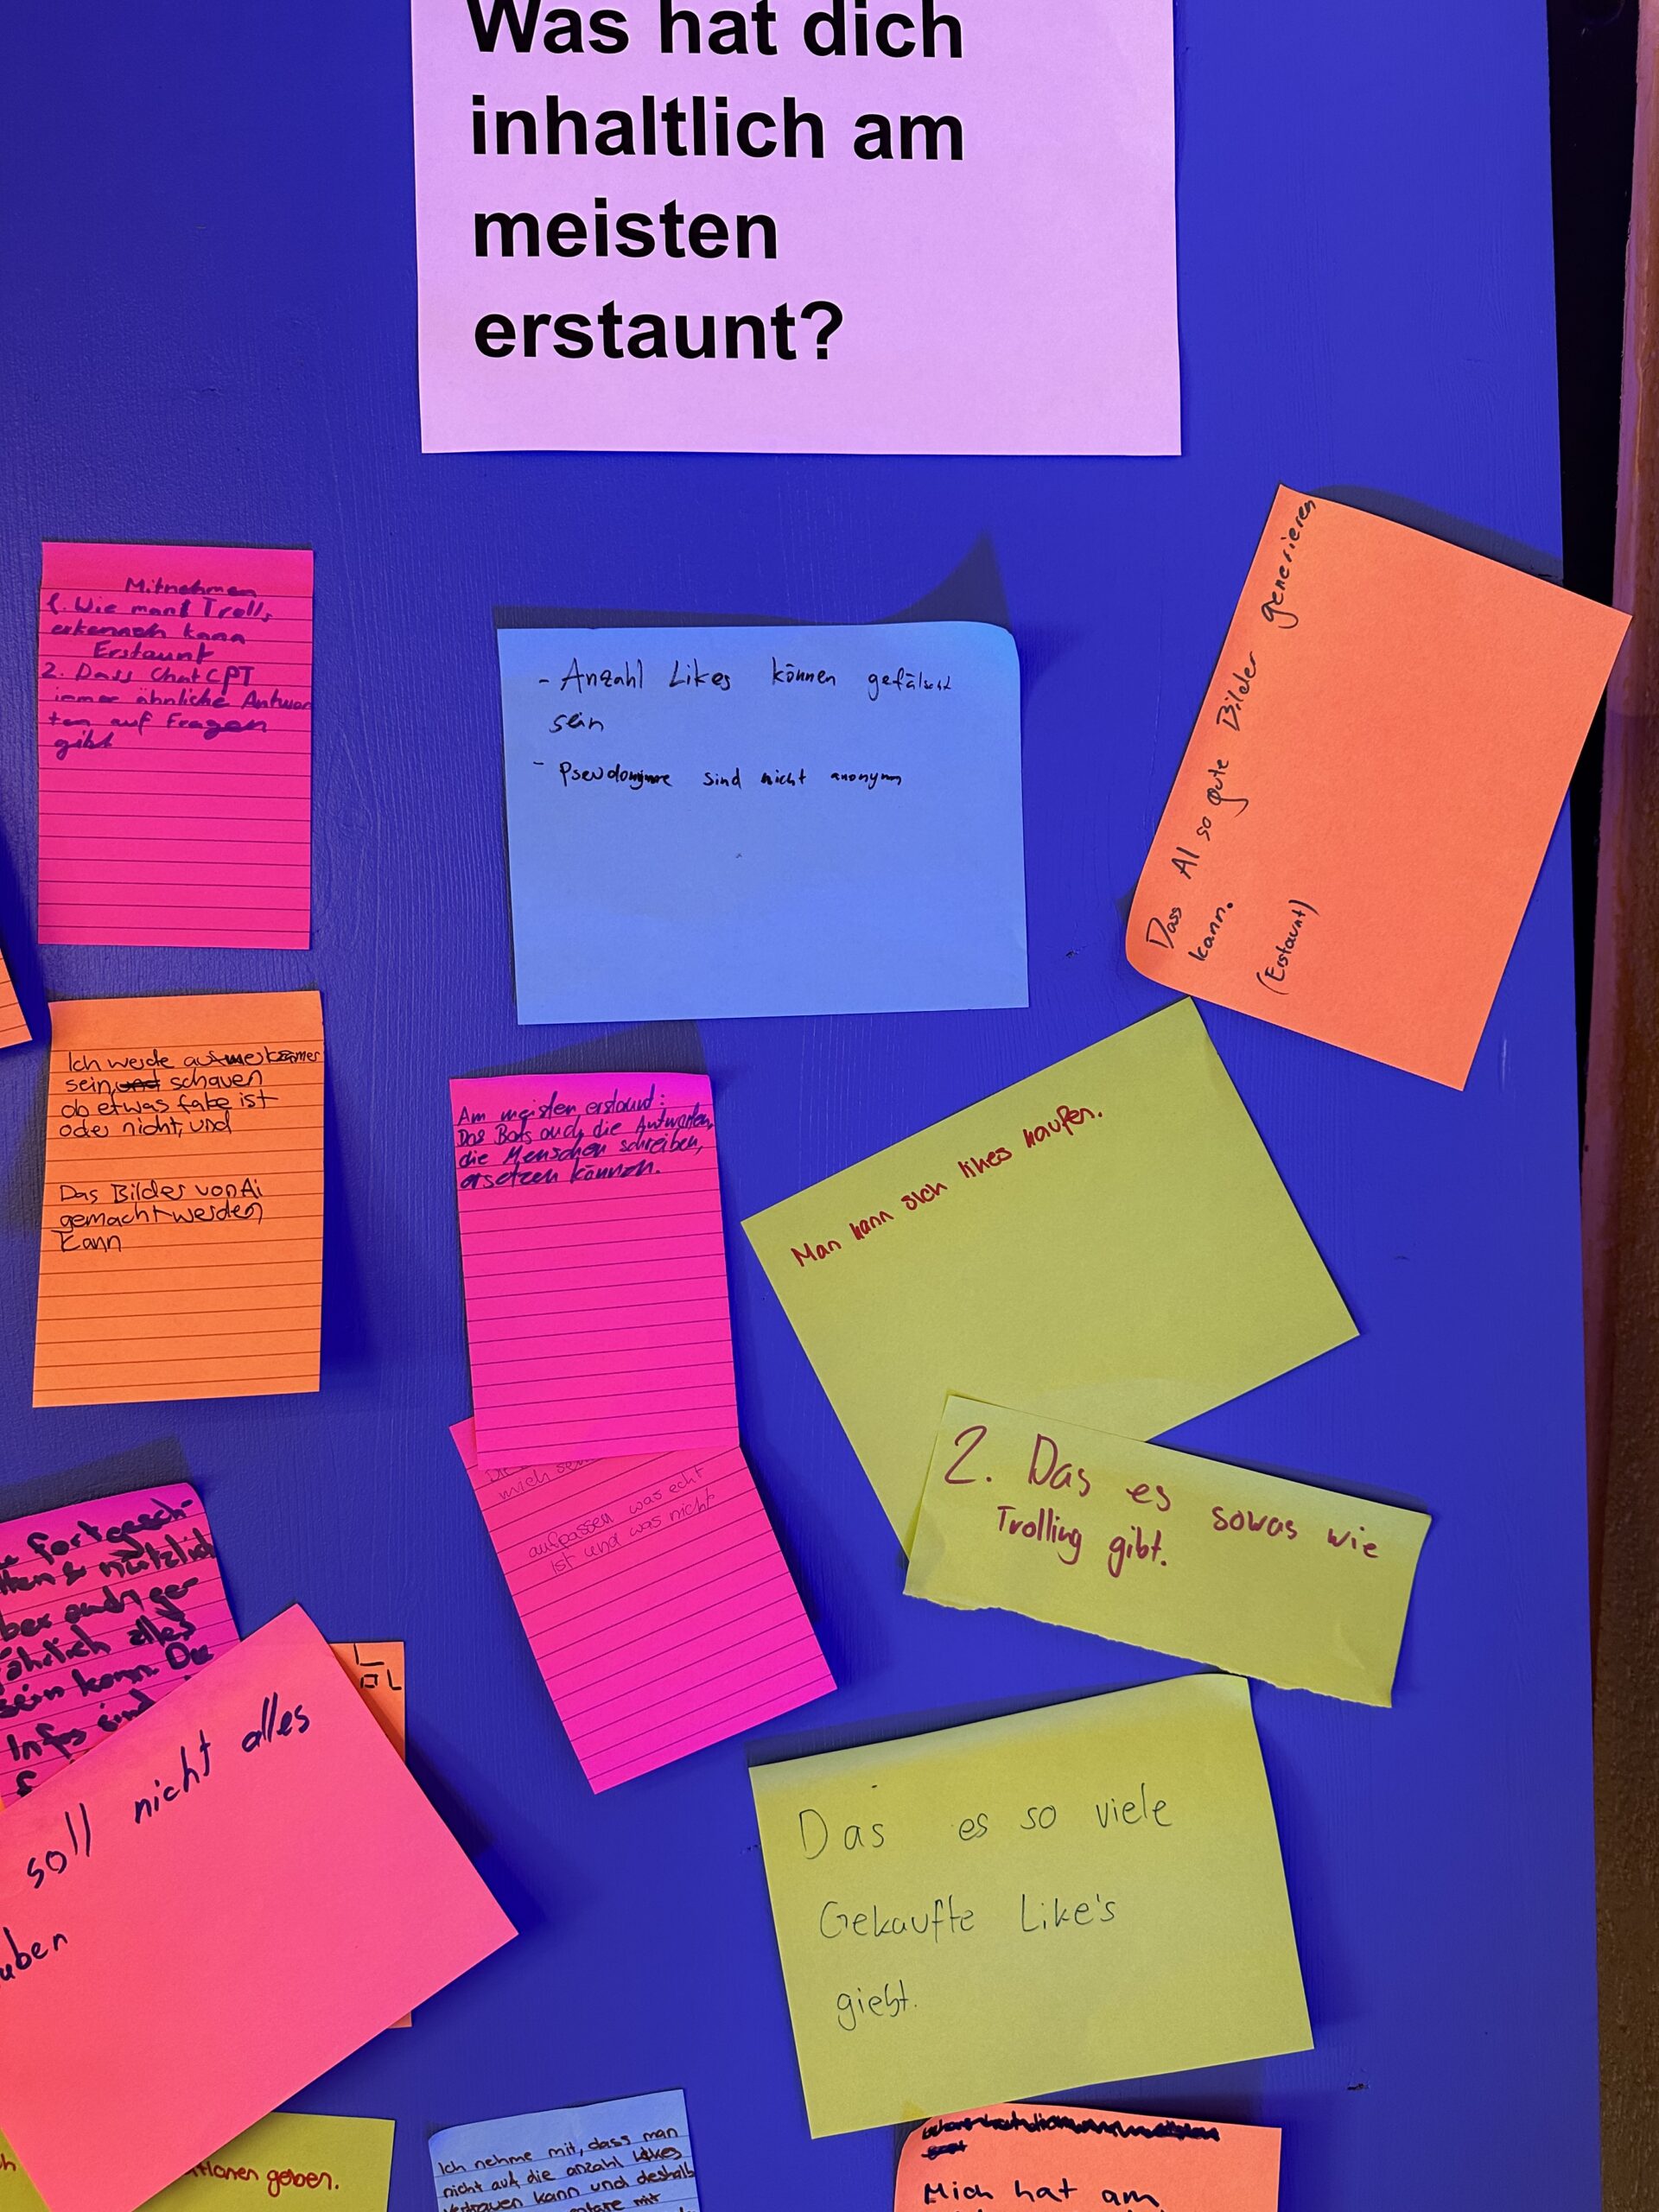 Was hat dich
inhaltlich am
meisten
erstaunt?
Mitnehmen
1. Wie man Trolls
erkennen kann
Erstaunt
2. Dass ChatGPT
immer ähnliche Antwor
ten auf Fragen
gibt
- Anzahl Likes können gefälscht
sein
- Pseudonyme sind nicht anonym
Dass AI so gute Bilder generieren
kann.
(Erstaunt)
Ich werde aufmerksamer
sein, und schauen
ob etwas fake ist
oder nicht, und
Das Bilder von Ai
gemacht werden
kann
Am meisten erstaunt:
Das Bots auch die Antworten,
die Menschen schreiben,
ersetzen können.
Man kann sich likes kaufen.
mich
aufpassen was echt
ist und was nicht
2. Das es sowas wie
Trolling gibt.
fortgesch-
nützlich
auch ge-
alles
sein kann. Die
Infos sind
LOL
soll nicht alles
uben
Das es so viele
Gekaufte Like's
giebt.
geben.
Ich nehme mit, dass man
nicht auf die anzahl Likes
vertrauen kann und deshalb
mit
Mich hat am